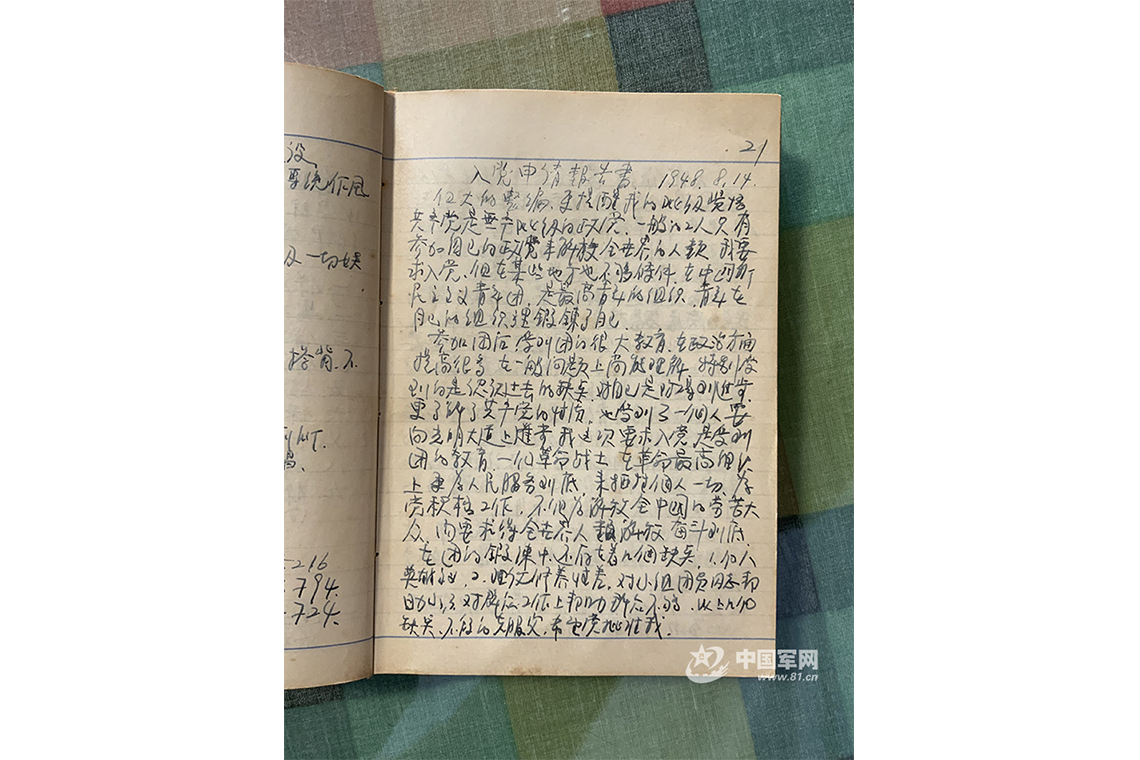 设
一切缺
搭背.不
216
794.
724.
21
入党申请报告书 1948.8.14.
伟大的整编,更提醒我的阶级觉悟
共产党是无产阶级的政党.一般的工人只有
参加自己的政党来解放全世界的人类 我要
求入党.但在某些地方也不够条件.在中国新
民主主义青年团.是最高青年的组织.青年在
自己的组织里锻鍊了自己.
参加团后.受到团的很大教育.在政治方面
提高很多 在一般问题上尚能理解 特别
到的是认识过去的缺点 对自己是
更了解了共产党的性质.也学到了一個人要
向光明大道上 我这次要求入党是受到
团的教育.一個革命战士 在革命最高
上 更为人民服务到底.来牺牲個人一切.为
党积极工作.不但为解放全中国的劳苦大
众.而要求得全世界人類解放 奋斗到底.
在团的锻鍊中.还存在着几個缺点.1.個人
英雄主义.2. 修养性差.对小组团员同志帮
助小.3.对群众工作上帮助群众不够.以上几個
缺点.不断的克服它.希望党批准我.
中国军网
www.81.cn